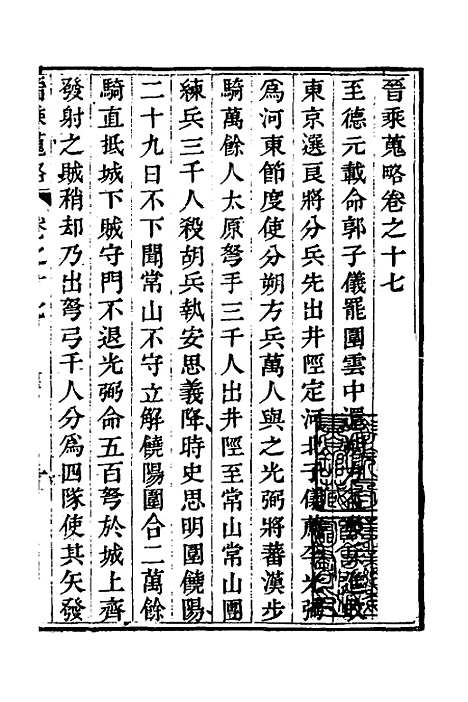 晉乘蒐略卷之十七
至德元載命郭子儀罷圍雲中還朔方益發兵進取
東京選良將分兵先出井陘定河北子儀薦李光弼
爲河東節度使分朔方兵萬人與之光弼將蕃漢步
騎萬餘人太原弩手三千人出井陘至常山常山團
練兵三千人殺胡兵執安思義降時史思明圍饒陽
二十九日不下聞常山不守立解饒陽圍合二萬餘
騎直抵城下賊守門不退光弼命五百弩於城上齊
發射之賊稍却乃出弩弓千人分爲四隊使其矢發
晉乘蒐略 卷之十七